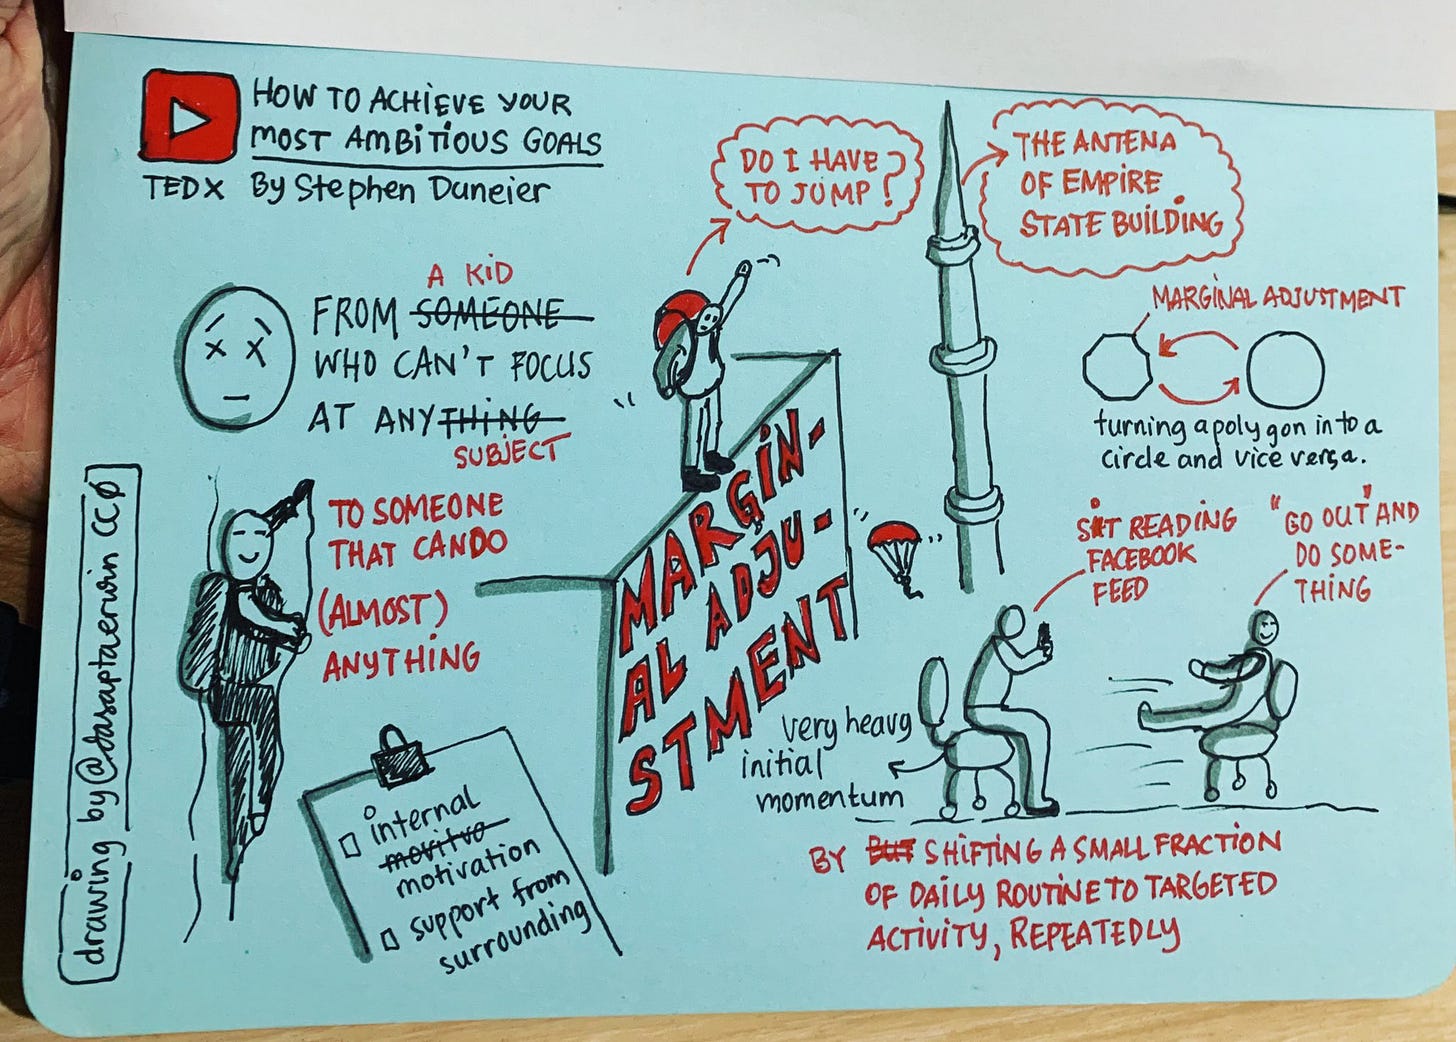 HOW TO ACHIEVE YOUR
MOST AMBITIOUS GOALS
TEDX By Stephen Duneier
A KID
FROM SOMEONE
WHO CAN'T FOCUS
AT ANYTHING
SUBJECT
TO SOMEONE
THAT CAN DO
(ALMOST)
ANYTHING
internal
movitvo
motivation
support from
surrounding
drawing by @dasaptaerwin CC0
DO I HAVE
TO JUMP?
THE ANTENA
OF EMPIRE
STATE BUILDING
MARGIN-
AL ADJU-
STMENT
MARGINAL ADJUSTMENT
turning a polygon into a
circle and vice versa.
SIT READING
FACEBOOK
FEED
"GO OUT" AND
DO SOME-
THING
very heavy
initial
momentum
BY BUT SHIFTING A SMALL FRACTION
OF DAILY ROUTINE TO TARGETED
ACTIVITY, REPEATEDLY